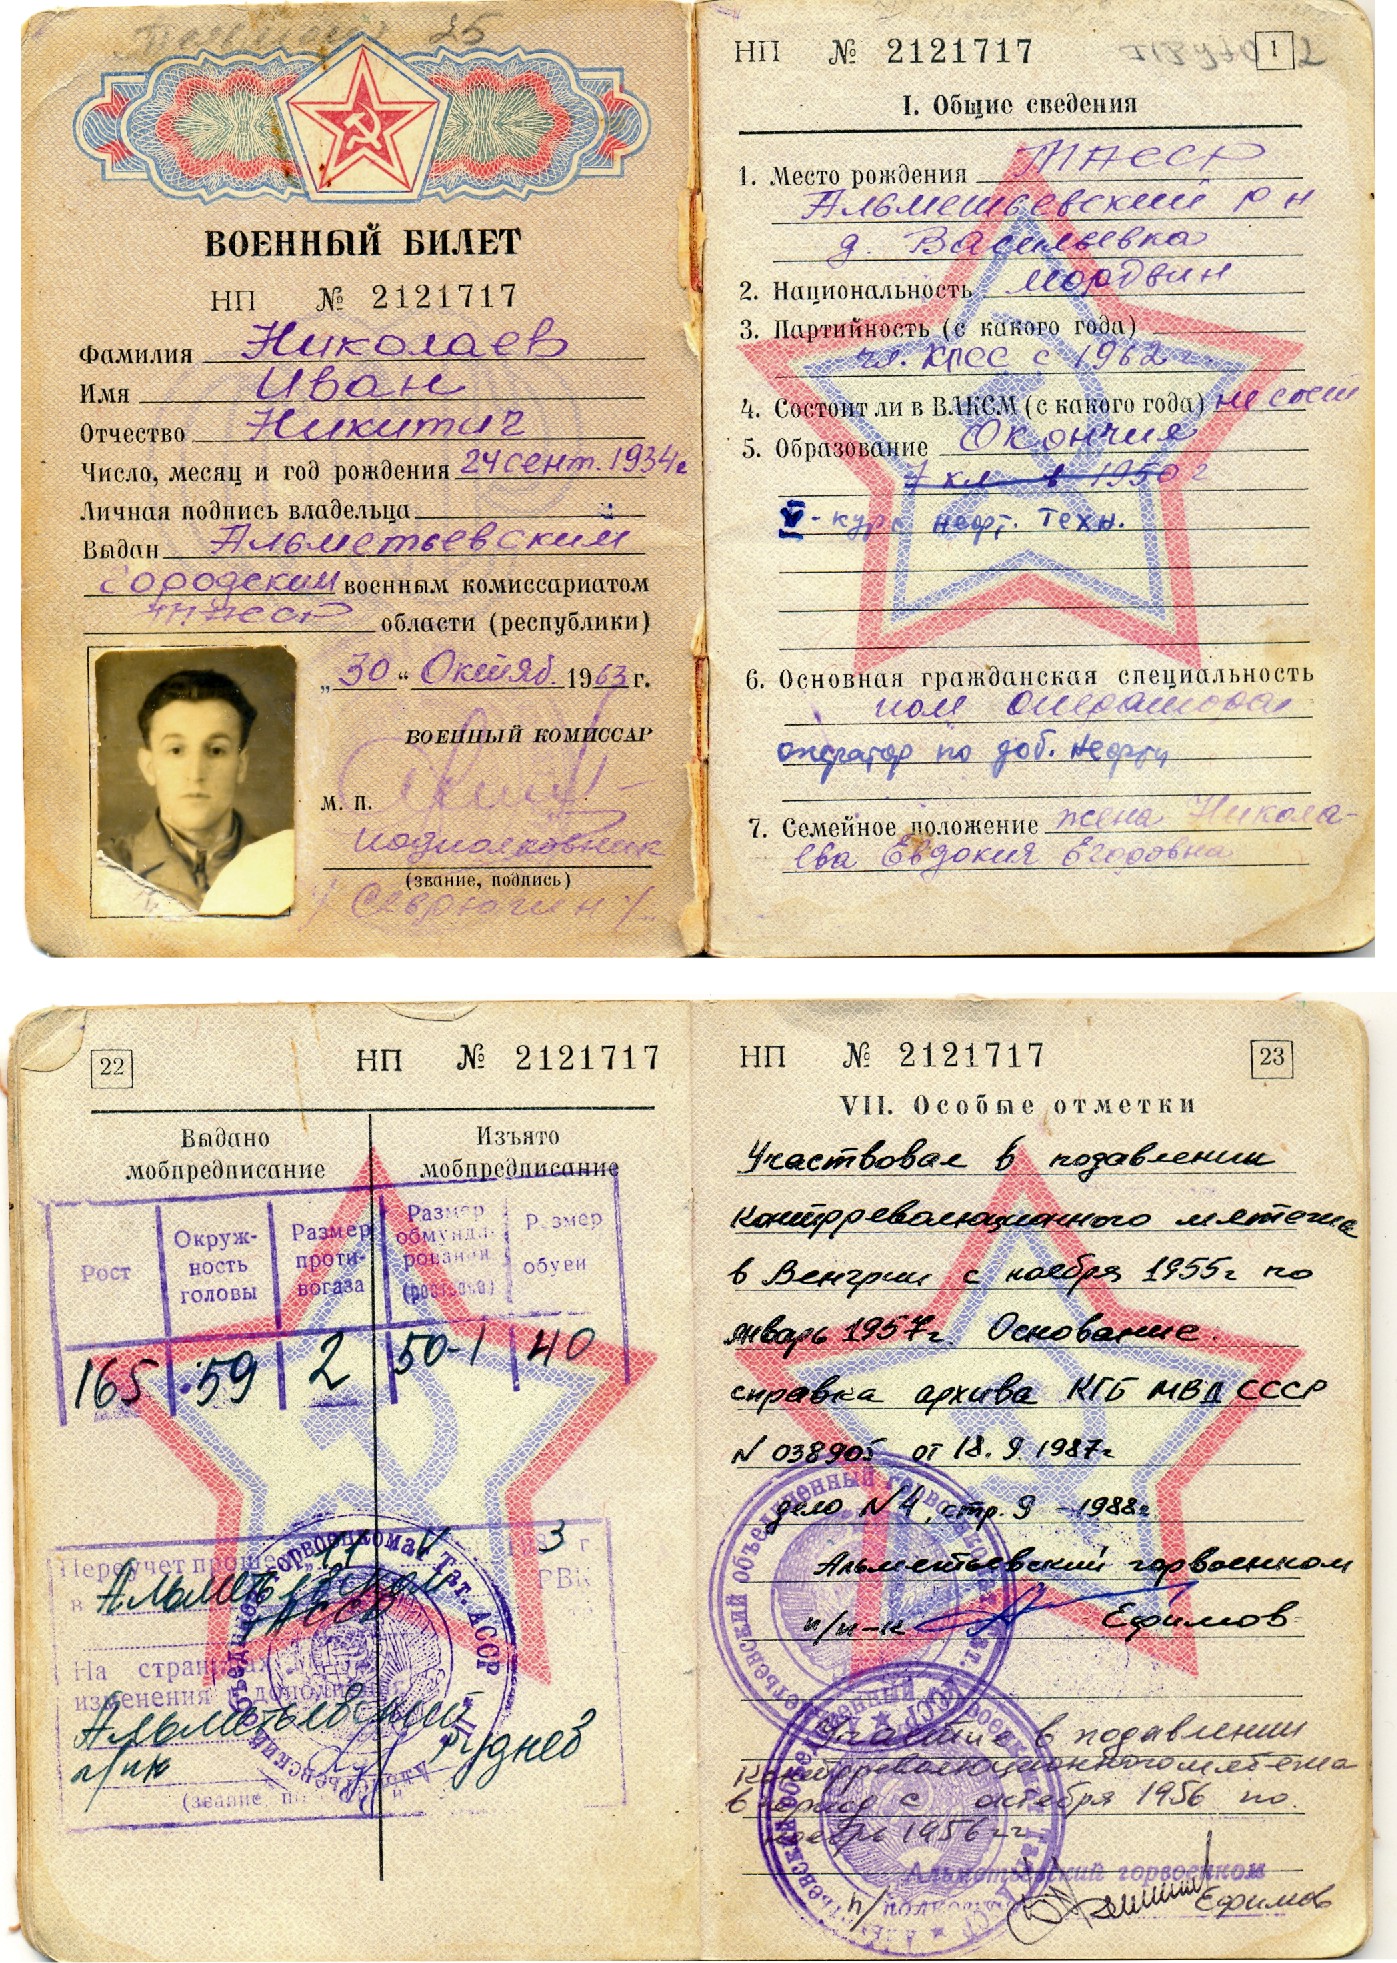 25
ВОЕННЫЙ БИЛЕТ
НП № 2121717
Фамилия Николаев
Имя Иван
Отчество Никитич
Число, месяц и год рождения 24 сент. 1934г
Личная подпись владельца
Выдан Альметьевским
городским военным комиссариатом
ТАССР области (республики)
„30“ Октяб. 1963 г.
ВОЕННЫЙ КОМИССАР
М. П.
подполковник
(звание, подпись)
/Севрюгин/
НП № 2121717 1
I. Общие сведения
1. Место рождения ТАССР
Альметьевский р н
д. Васильевка
2. Национальность мордвин
3. Партийность (с какого года)
чл. КПСС с 1962 г.
4. Состоит ли в ВЛКСМ (с какого года) не сост
5. Образование Окончил
7 кл в 1950 г
- курс нефт. техн.
6. Основная гражданская специальность
пом оператора
оператор по доб. нефти
7. Семейное положение жена Никола-
ева Евдокия Егоровна
22 НП № 2121717
Выдано мобпредписание
Изъято мобпредписание
Рост
Окруж-ность головы
Размер проти-вогаза
Размер обмунди-рования (ростовка)
Размер обуви
165 59 2 50-1 40
Переучет
Альметьевский
АССР
На страницах
изменения и дополнения
Альметьевский
п/пк Руднев
(звание,
Альметьевский объединенный горвоенкомат Тат. АССР
НП № 2121717 23
VII. Особые отметки
Участвовал в подавлении
контрреволюционного мятежа
в Венгрии с ноября 1955г по
январь 1957г. Основание
справка архива КГБ МВД СССР
N 038905 от 18.9.1987г
дело N4, стр. 9 - 1988г.
Альметьевский горвоенком
п/п-к Ефимов
Альметьевский объединенный горвоенкомат Тат. АССР
Участие в подавлении
Контрреволюционного мятежа
в период с октября 1956 по
ноябрь 1956 гг
Альметьевский горвоенком
п/полковник Ефимов